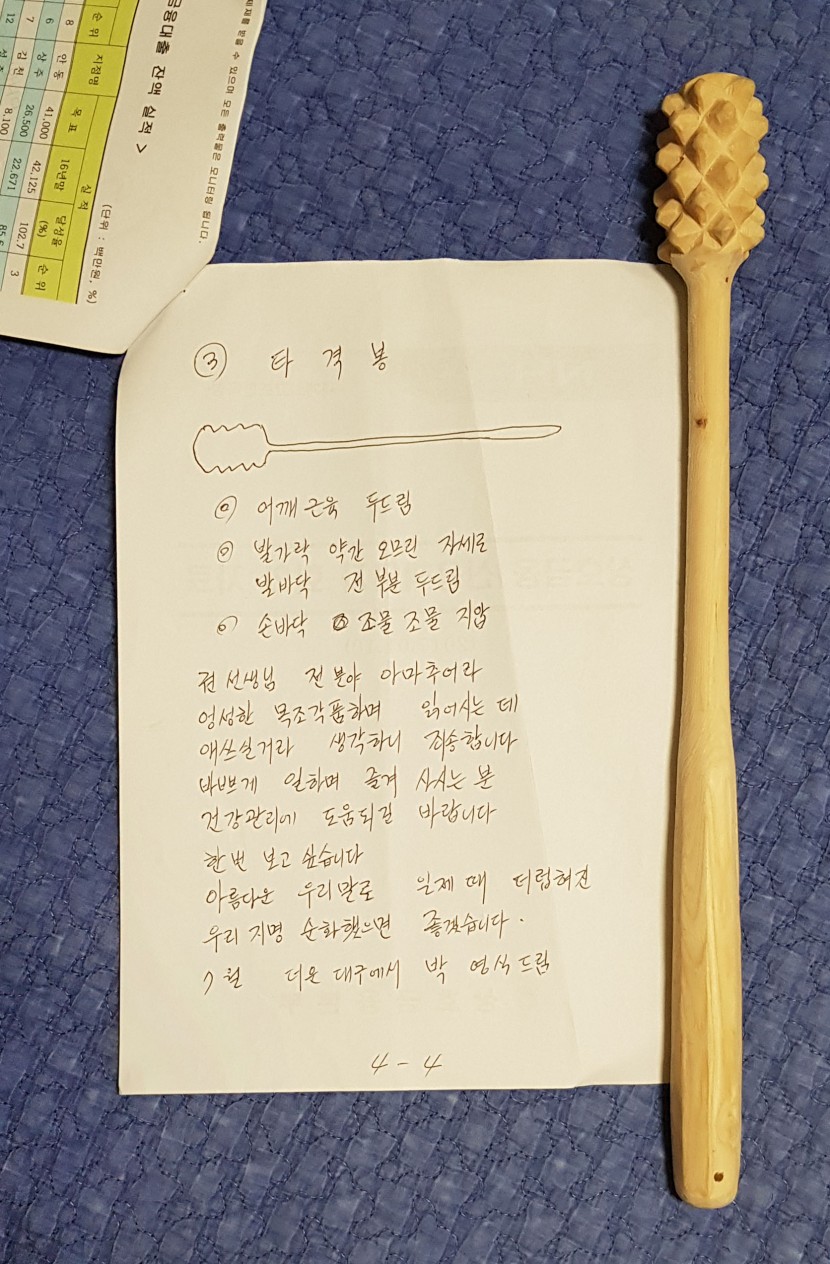 ③ 타 격 봉
ⓐ 어깨 근육 두드림
ⓑ 발가락 약간 오므린 자세로
발바닥 전 부분 두드림
ⓒ 손바닥 조물 조물 지압
전 분야 아마추어라
엉성한 목조각품하며 읽어시는 데
애쓰실거라 생각하니 죄송합니다
바쁘게 일하며 즐겨 사시는 분
건강관리에 도움되길 바랍니다
한번 보고 싶습니다
아름다운 우리말로 일제 때 더럽혀진
우리 지명 순화했으면 좋겠습니다.
7월 더운 대구에서 박 영식 드림
4-4
수 있으며 모든 출력물은 모니터링 됩니다.
금융대출 잔액 실적 >
(단위 : 백만원, %)
순위 지점명 목표 실적
16년말 달성율(%) 순위
8 안동 41,000 42,125 102.7 3
6 상주 26,500 22,671
7 김천 8,100
12